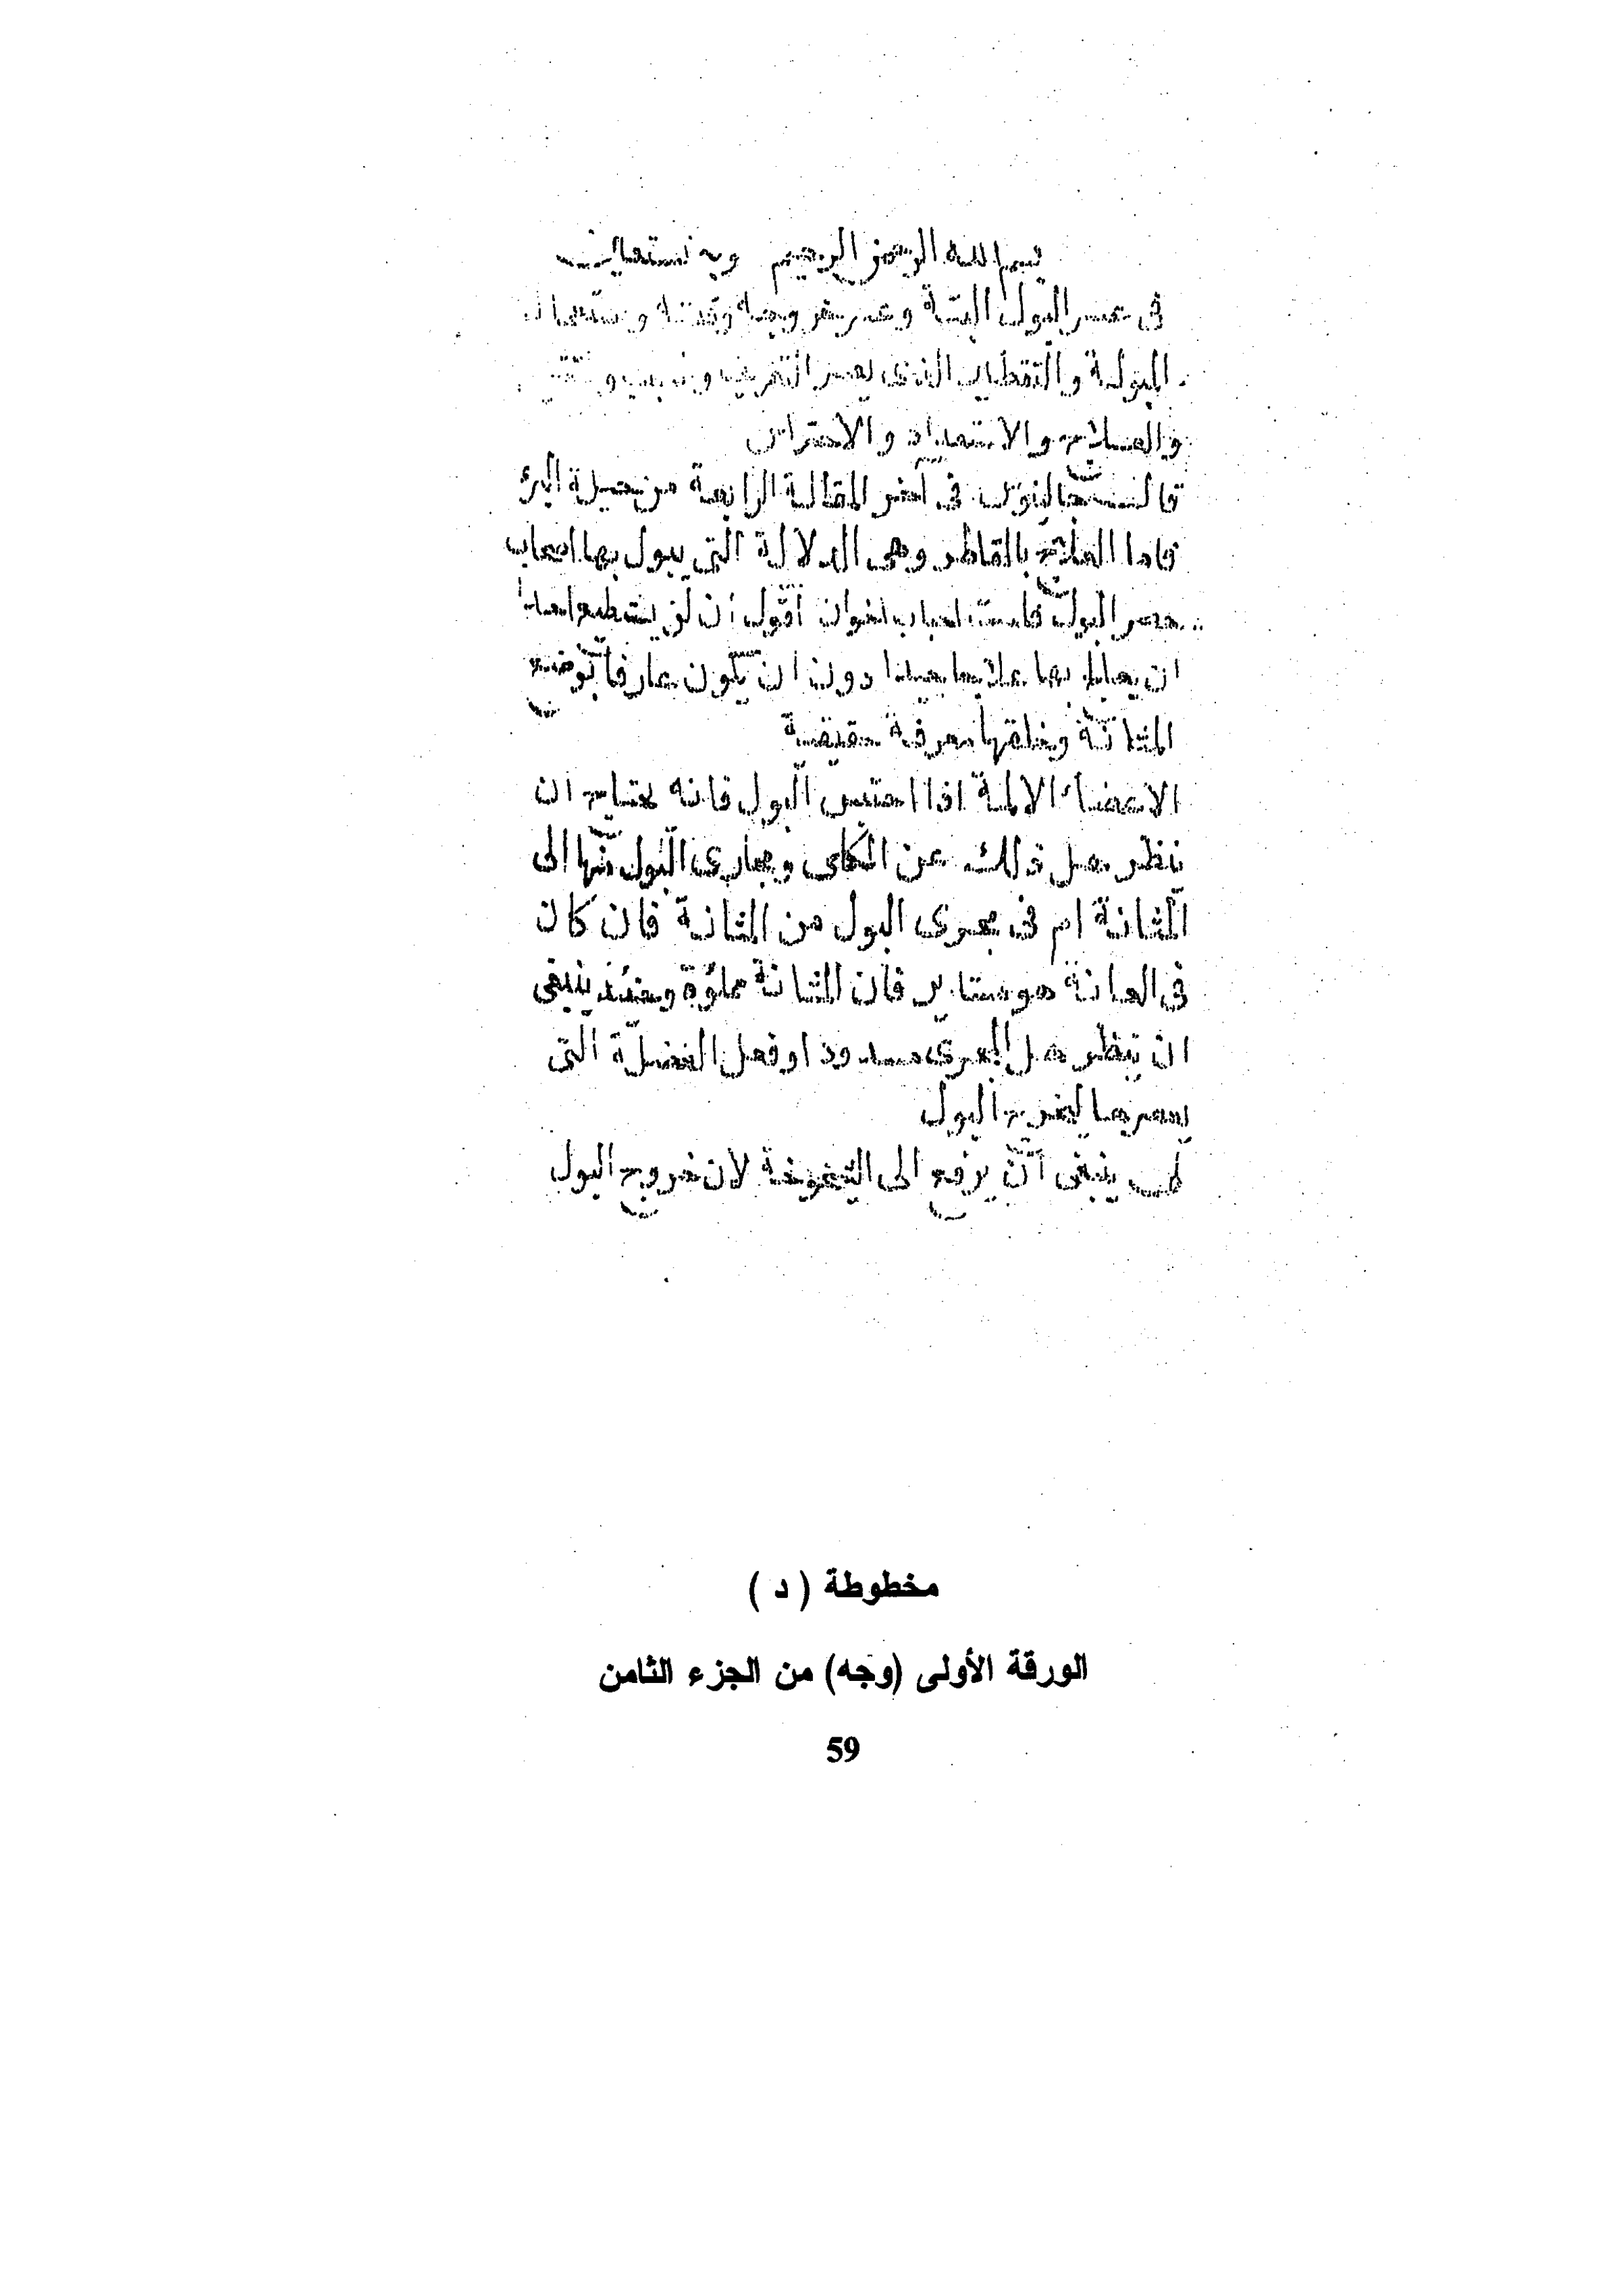 بسم الله الرحمن الرحيم وبه نستعين
فى عسر البول البتة وعسر خروجه
المبولة والتقطير الذى
والعلاج والاستعداد والاحتراس
قال جالينوس فى آخر المقالة الرابعة من حيلة البرؤ
فاما العلاج بالقاطر وهى الدلالة التى يبول بها اصحاب
حصر البول اقول ان لن
ان يعالج بها علاجا جيدا دون ان يكون عارفا بوضع
المثانة وخلقها معرفة حقيقية
الاعضاء الالمة اذا احتبس البول فانه يحتاج ان
ننظر هل ذلك عن الكلى ومجارى البول منها الى
المثانة ام فى مجرى البول من المثانة فان كان
فى العانة فان المثانة مملوة وحينئذ ينبغى
ان تنظر هل المجرى مسدود او فعل العضلة التى
البول
ينبغى ان الى لان خروج البول
مخطوطة ( د )
الورقة الأولى (وجه) من الجزء الثامن
59